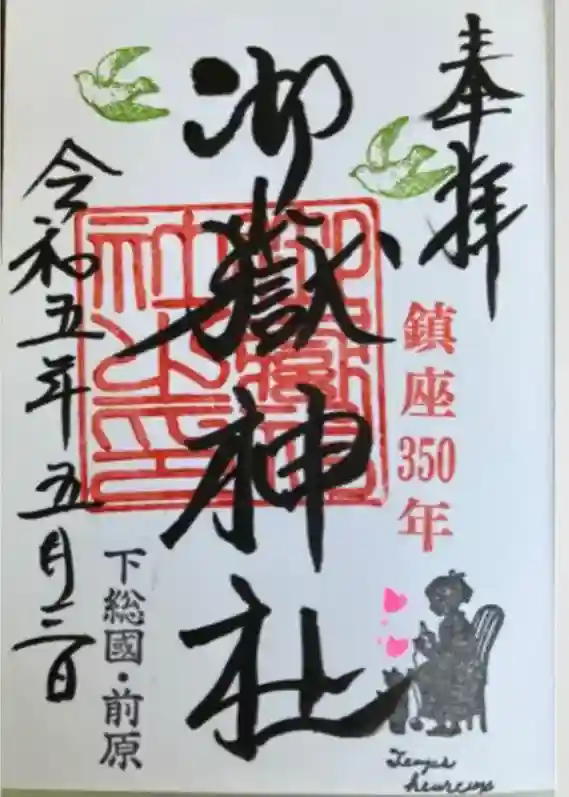 奉拝
鎮座350年
御嶽神社
下総國・前原
令和五年五月三日
Temps
heureux